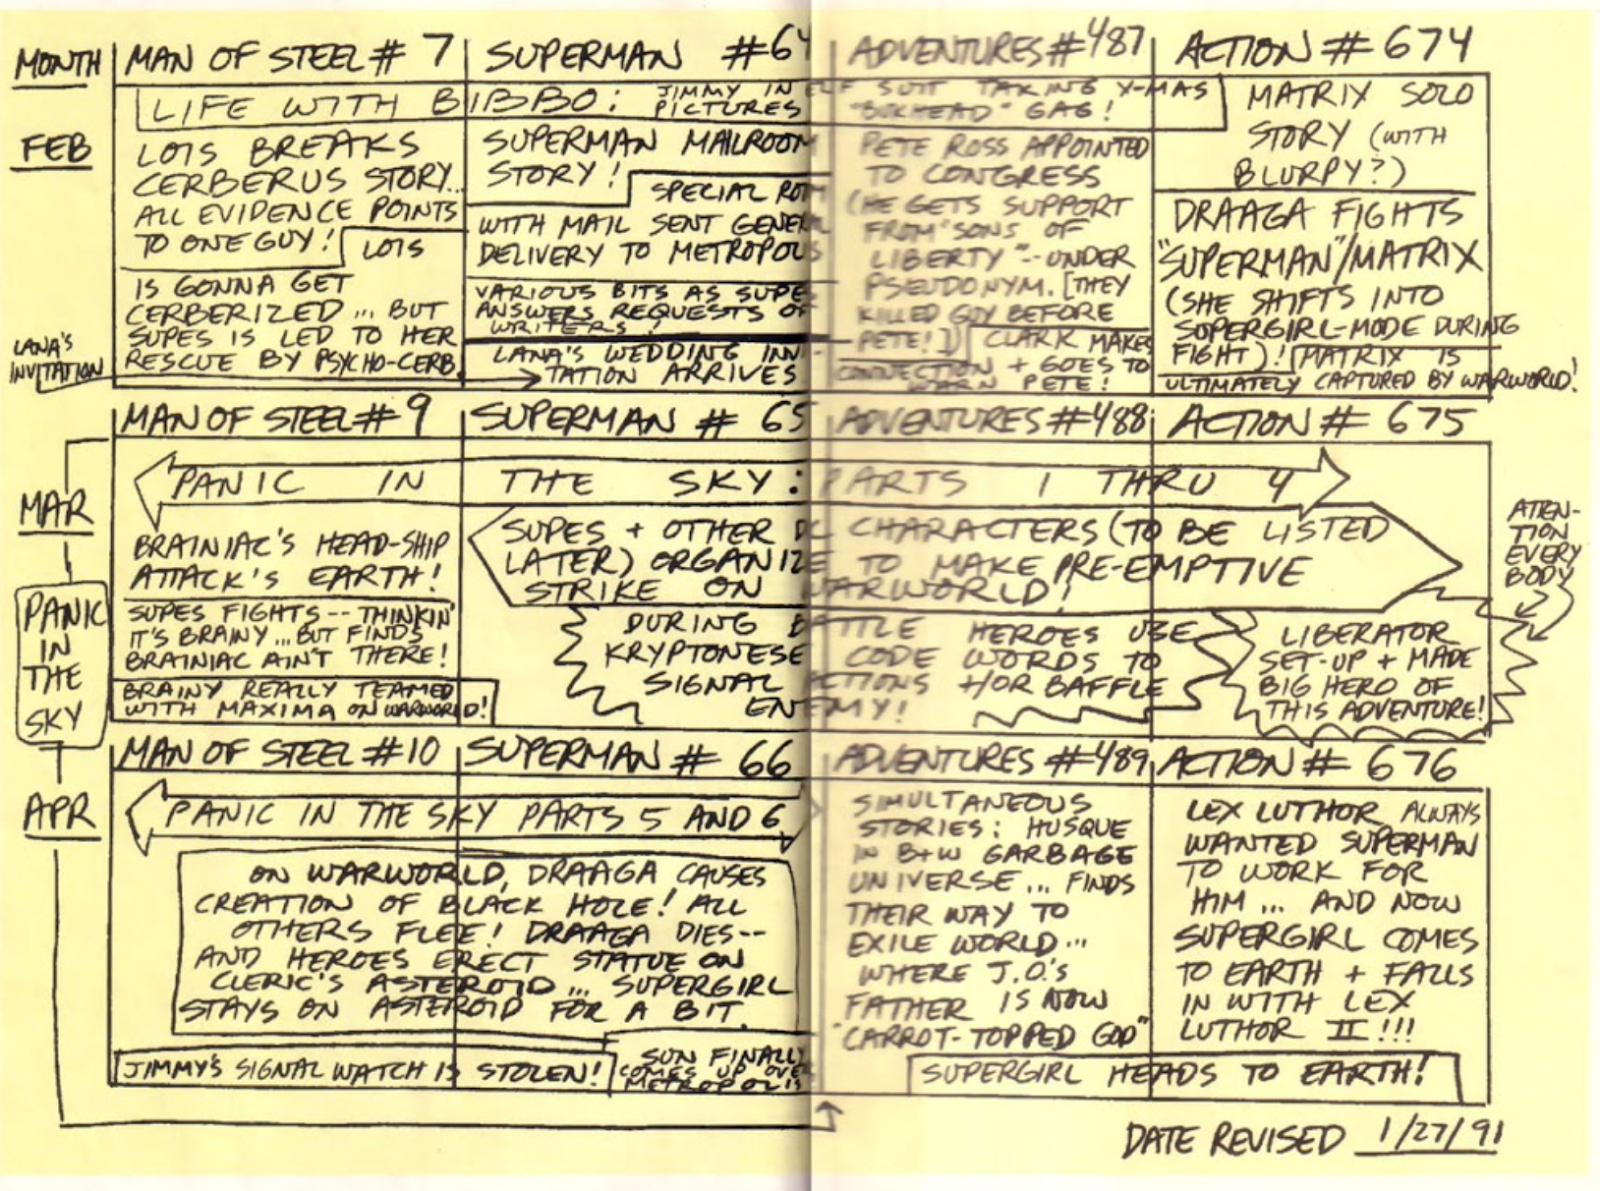 MONTH
MAN OF STEEL # 7
SUPERMAN #64
ADVENTURES #487
ACTION # 674
LIFE WITH BIBBO: JIMMY IN ELF SUIT TAKING X-MAS
PICTURES "BOXHEAD" GAG!
FEB
LOIS BREAKS
CERBERUS STORY...
ALL EVIDENCE POINTS
TO ONE GUY!
LOIS
IS GONNA GET
CERBERIZED ... BUT
SUPES IS LED TO HER
RESCUE BY PSYCHO-CERB.
LANA'S
INVITATION
SUPERMAN MAILROOM
STORY!
SPECIAL ROOM
WITH MAIL SENT GENERAL
DELIVERY TO METROPOLIS
VARIOUS BITS AS SUPES
ANSWERS REQUESTS OF
WRITERS!
LANA'S WEDDING INVI-
TATION ARRIVES
PETE ROSS APPOINTED
TO CONGRESS
(HE GETS SUPPORT
FROM "SONS OF
LIBERTY"--UNDER
PSEUDONYM. [THEY
KILLED GUY BEFORE
PETE!])
CLARK MAKES
CONNECTION + GOES TO
WARN PETE!
MATRIX SOLO
STORY (WITH
BLURPY?)
DRAAGA FIGHTS
"SUPERMAN"/MATRIX
(SHE SHIFTS INTO
SUPERGIRL-MODE DURING
FIGHT)!
MATRIX IS
ULTIMATELY CAPTURED BY WARWORLD!
MAN OF STEEL # 9
SUPERMAN # 65
ADVENTURES #488
ACTION # 675
MAR
PANIC
IN
THE
SKY
PANIC IN THE SKY: PARTS 1 THRU 4
BRAINIAC'S HEAD-SHIP
ATTACK'S EARTH!
SUPES FIGHTS -- THINKIN'
IT'S BRAINY ... BUT FINDS
BRAINIAC AIN'T THERE!
BRAINY REALLY TEAMED
WITH MAXIMA ON WARWORLD!
SUPES + OTHER DC CHARACTERS (TO BE LISTED
LATER) ORGANIZE TO MAKE PRE-EMPTIVE
STRIKE ON WARWORLD!
DURING BATTLE HEROES USE
KRYPTONESE CODE WORDS TO
SIGNAL ACTIONS +/OR BAFFLE
ENEMY!
LIBERATOR
SET-UP + MADE
BIG HERO OF
THIS ADVENTURE!
ATTEN-
TION
EVERY
BODY
MAN OF STEEL #10
SUPERMAN # 66
ADVENTURES #489
ACTION # 676
APR
PANIC IN THE SKY PARTS 5 AND 6
ON WARWORLD, DRAAGA CAUSES
CREATION OF BLACK HOLE! ALL
OTHERS FLEE! DRAAGA DIES--
AND HEROES ERECT STATUE ON
CLERIC'S ASTEROID ... SUPERGIRL
STAYS ON ASTEROID FOR A BIT.
JIMMY'S SIGNAL WATCH IS STOLEN!
SUN FINALLY
COMES UP OVER
METROPOLIS
SIMULTANEOUS
STORIES: HUSQUE
IN B+W GARBAGE
UNIVERSE ... FINDS
THEIR WAY TO
EXILE WORLD ...
WHERE J.O.'S
FATHER IS NOW
"CARROT-TOPPED GOD"
LEX LUTHOR ALWAYS
WANTED SUPERMAN
TO WORK FOR
HIM ... AND NOW
SUPERGIRL COMES
TO EARTH + FALLS
IN WITH LEX
LUTHOR II !!!
SUPERGIRL HEADS TO EARTH!
DATE REVISED 1/27/91